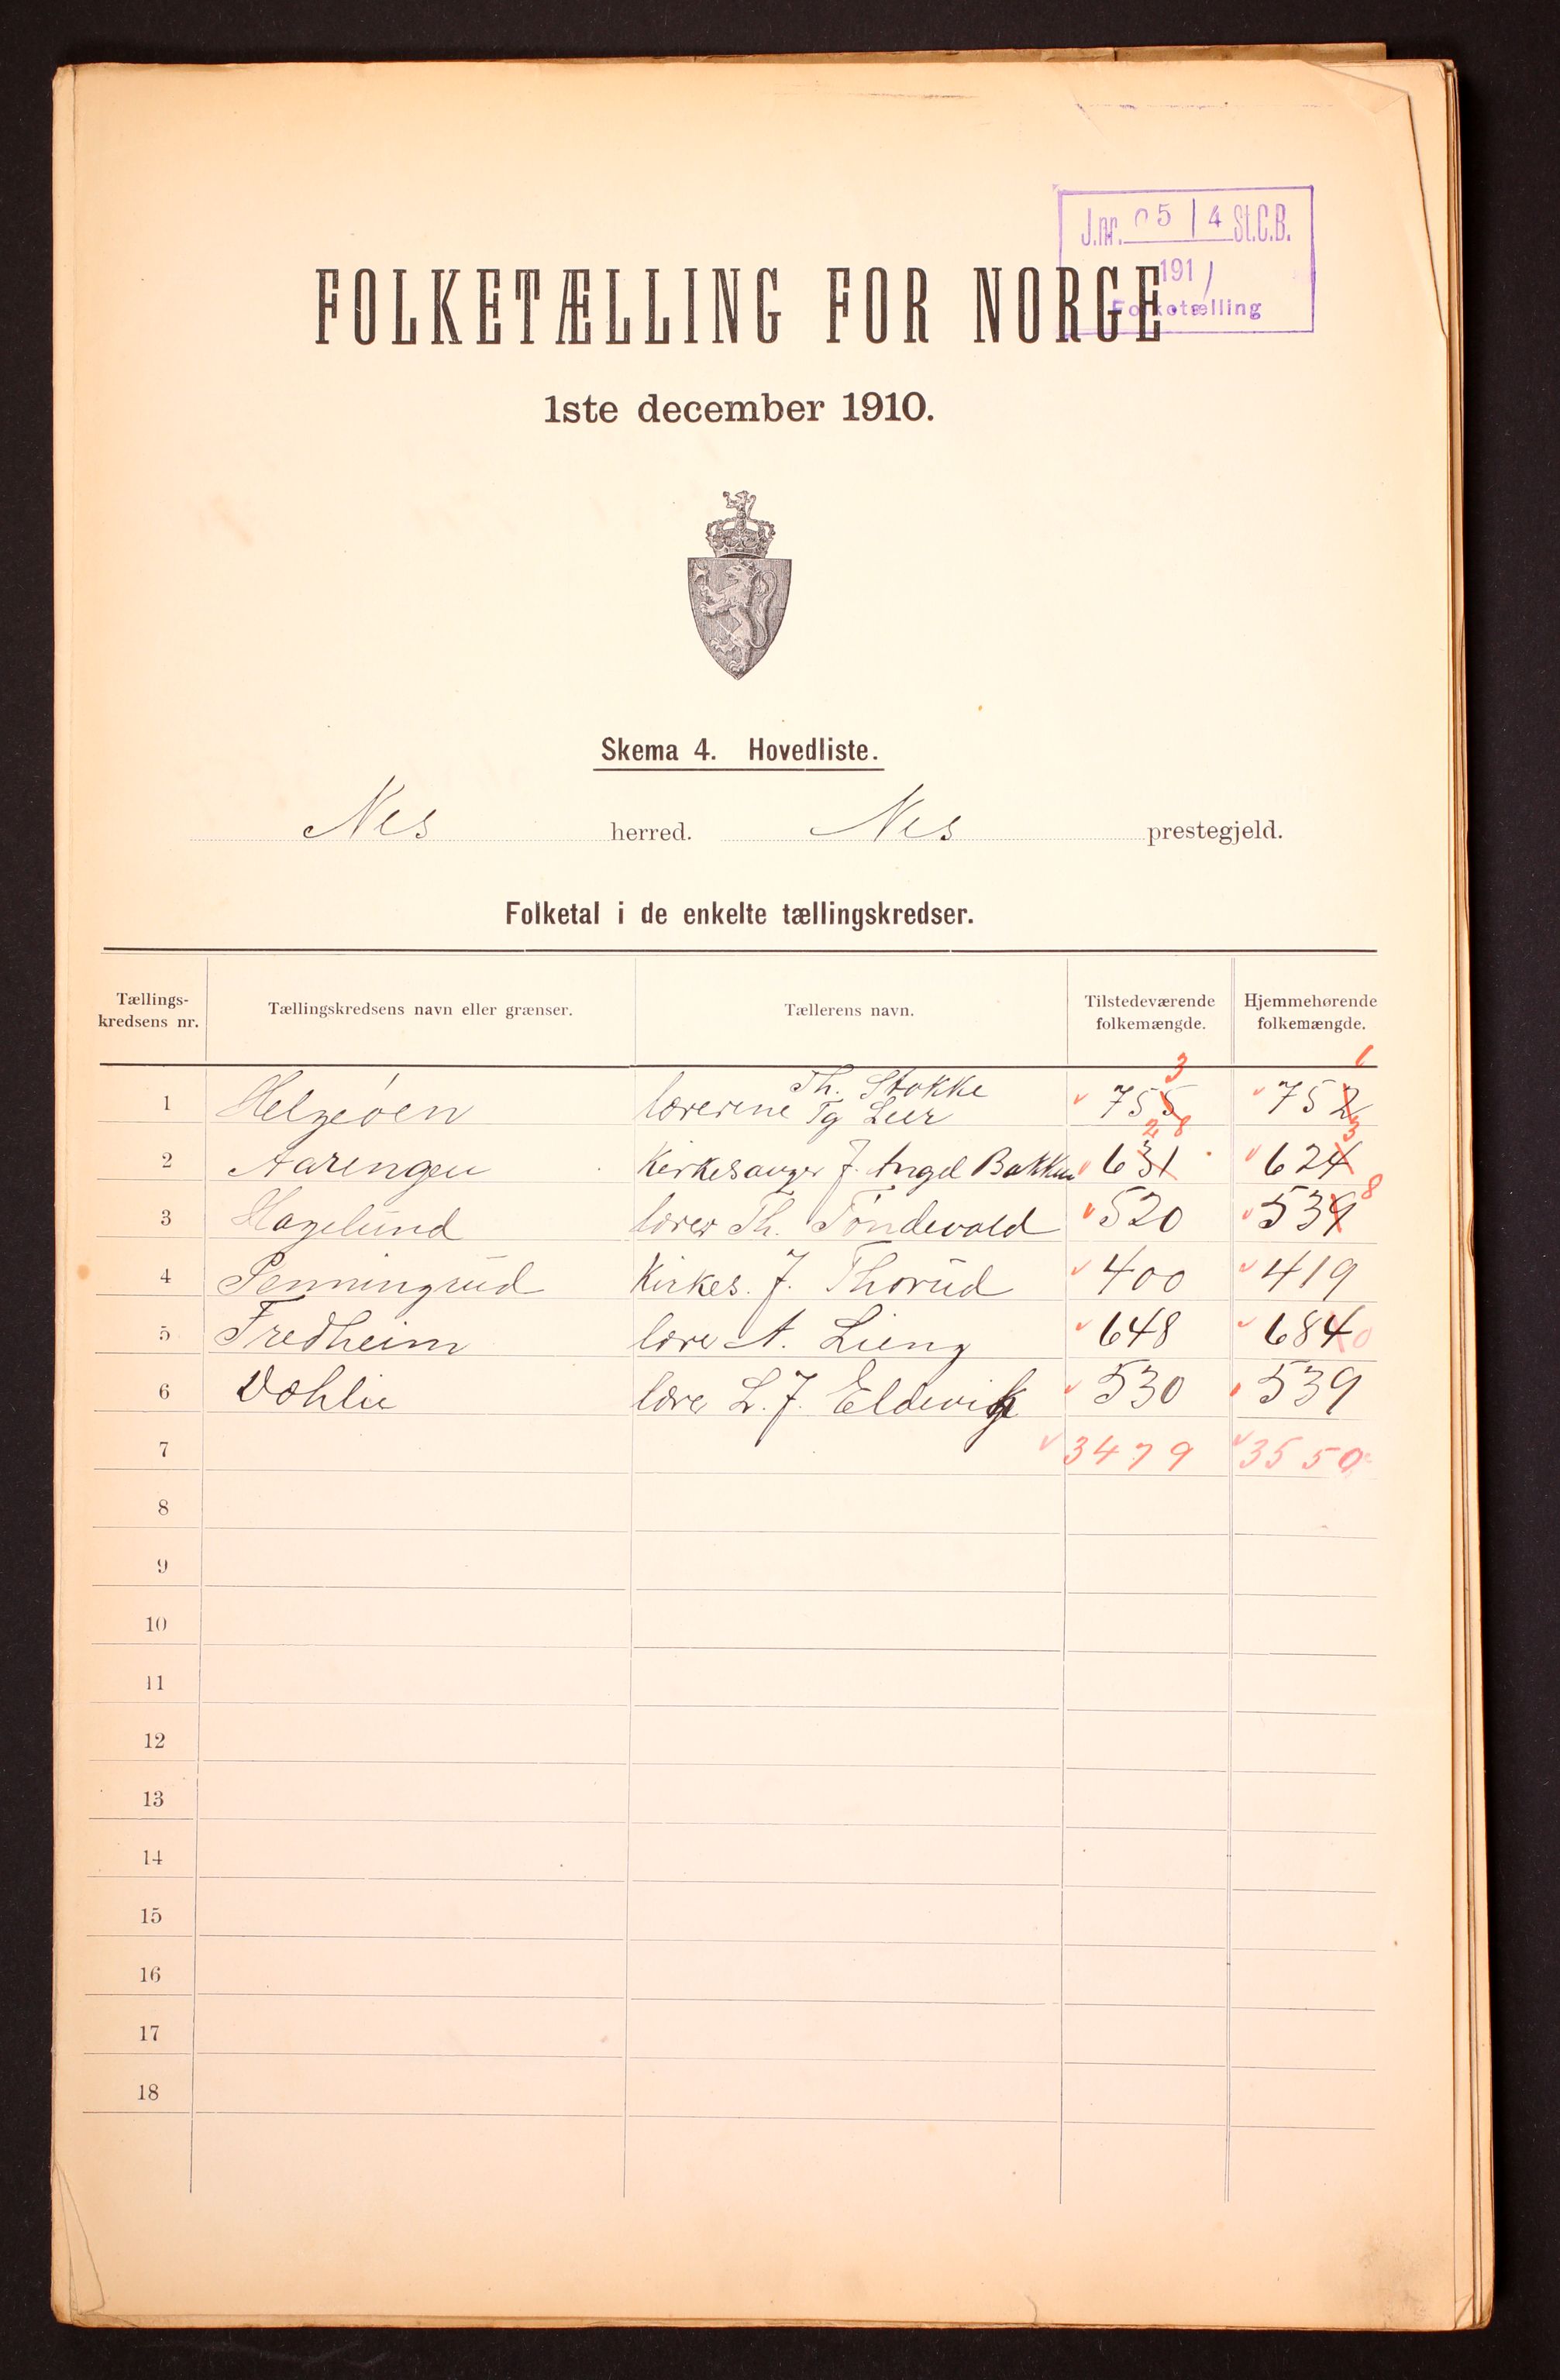 J.nr. 05 | 4 St.C.B.
1911
Folketælling
FOLKETÆLLING FOR NORGE
1ste december 1910.
Skema 4. Hovedliste.
Nes herred. Nes prestegjeld.
Folketal i de enkelte tællingskredser.
Tællings-kredsens nr. Tællingskredsens navn eller grænser. Tællerens navn. Tilstedeværende folkemængde. Hjemmehørende folkemængde.
3 1
1 Helgeøen lærerene Th. Stokke Tg Lier 755 752
28 3
2 Aarengen Kirkesanger J. Angel Bakken 631 624
8
3 Hagelund lærer Th. Töndevold 520 539
4 Penningrud Kirkes. J. Thorud 400 419
5 Fredheim lærer A. Lieng 648 684 0
6 Dæhlie lærer L. J. Eldevik 530 539
7 3479 3550
8
9
10
11
12
13
14
15
16
17
18